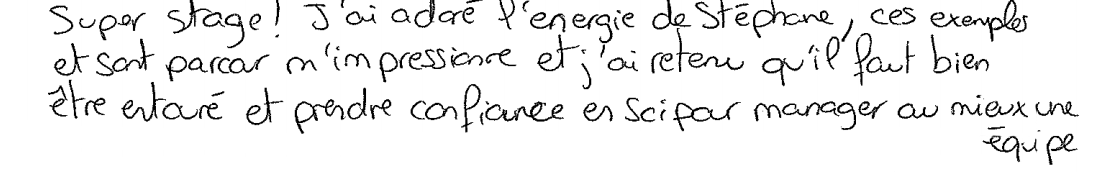 Super stage! J'ai adoré l'energie de Stéphane, ces exemples
et sont parcour m'impressionne et j'ai retenu qu'il faut bien
être entouré et prendre confiance en soi pour manager au mieux une
équipe